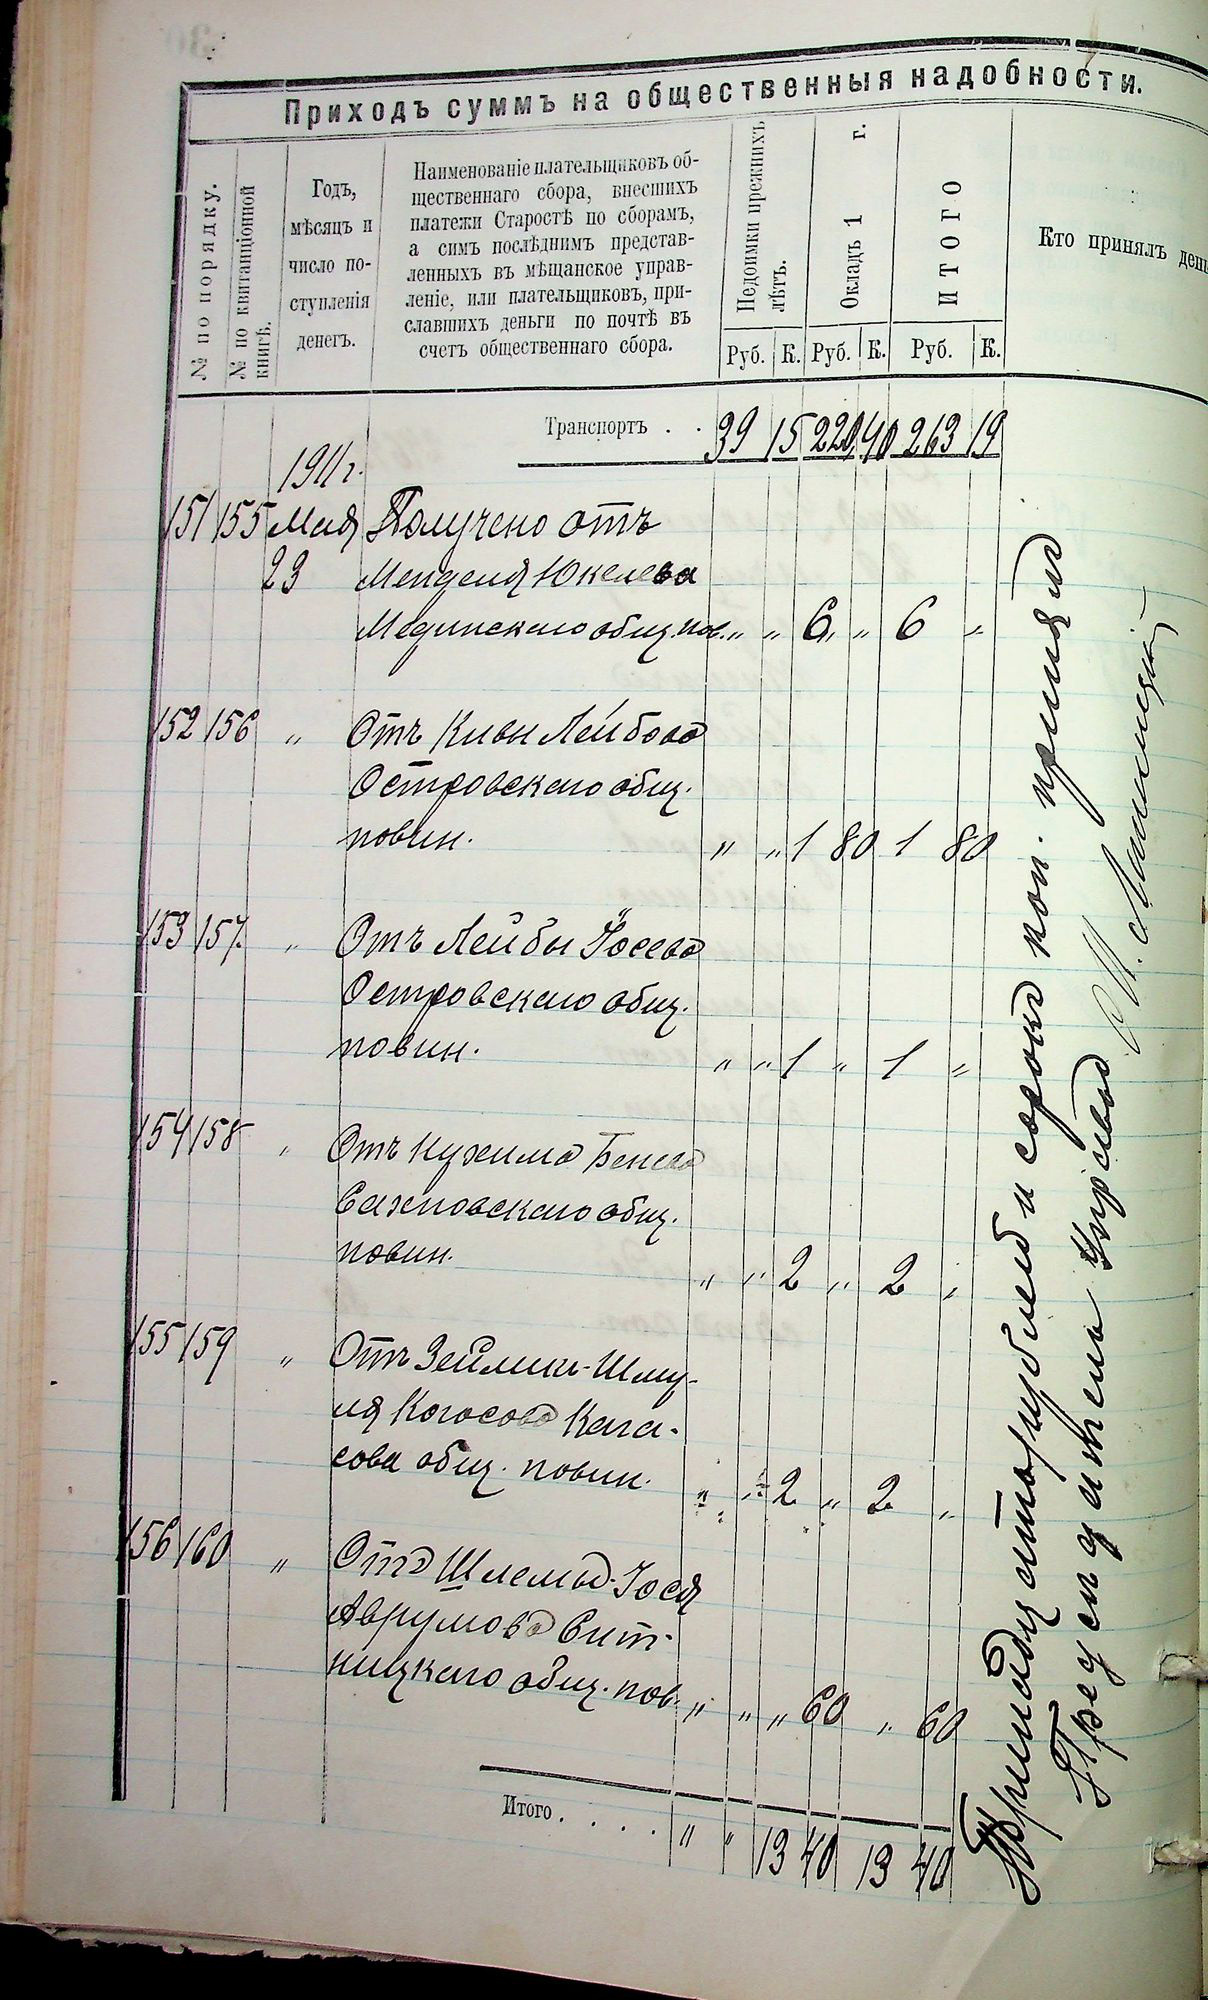 Приходъ суммъ на общественныя надобности.
№ по порядку.
№ по квитанціонной
книгѣ.
Годъ,
мѣсяцъ и
число по-
ступленія
денегъ.
Наименованіе плательщиковъ об-
щественнаго сбора, внесшихъ
платежи Старостѣ по сборамъ,
а симъ послѣднимъ представ-
ленныхъ въ мѣщанское управ-
леніе, или плательщиковъ, при-
славшихъ деньги по почтѣ въ
счетъ общественнаго сбора.
Недоимки прежнихъ
лѣтъ.
Окладъ 1 г.
ИТОГО
Кто принялъ
Руб. К. Руб. К. Руб. К.
Транспортъ . . 39 15 220 40 263 19
1911 г.
151 155 Мая Получено отъ
23 Менделя Юкелева
Мединскаго общ. пов. „ „ 6 „ 6 „
152 156 „ Отъ Кивы Лейбова
Островскаго общ.
повин. „ „ 1 80 1 80
153 157 „ Отъ Лейбы Іосева
Островскаго общ.
повин. „ „ 1 „ 1 „
154 158 „ Отъ Нухима Бенева
Сахновскаго общ.
повин. „ „ 2 „ 2 „
155 159 „ Отъ Зейлика-Шму-
ля Когосова Кага-
сова общ. повин. „ „ 2 „ 2 „
156 160 „ Отъ Шлемы-Іося
Аврумова Сит-
ницкаго общ. пов. „ „ „ 60 „ 60
Итого . . . . „ „ 13 40 13 40
Тринадцать рублей и сорокъ коп. принялъ
Предсѣдатель Управы